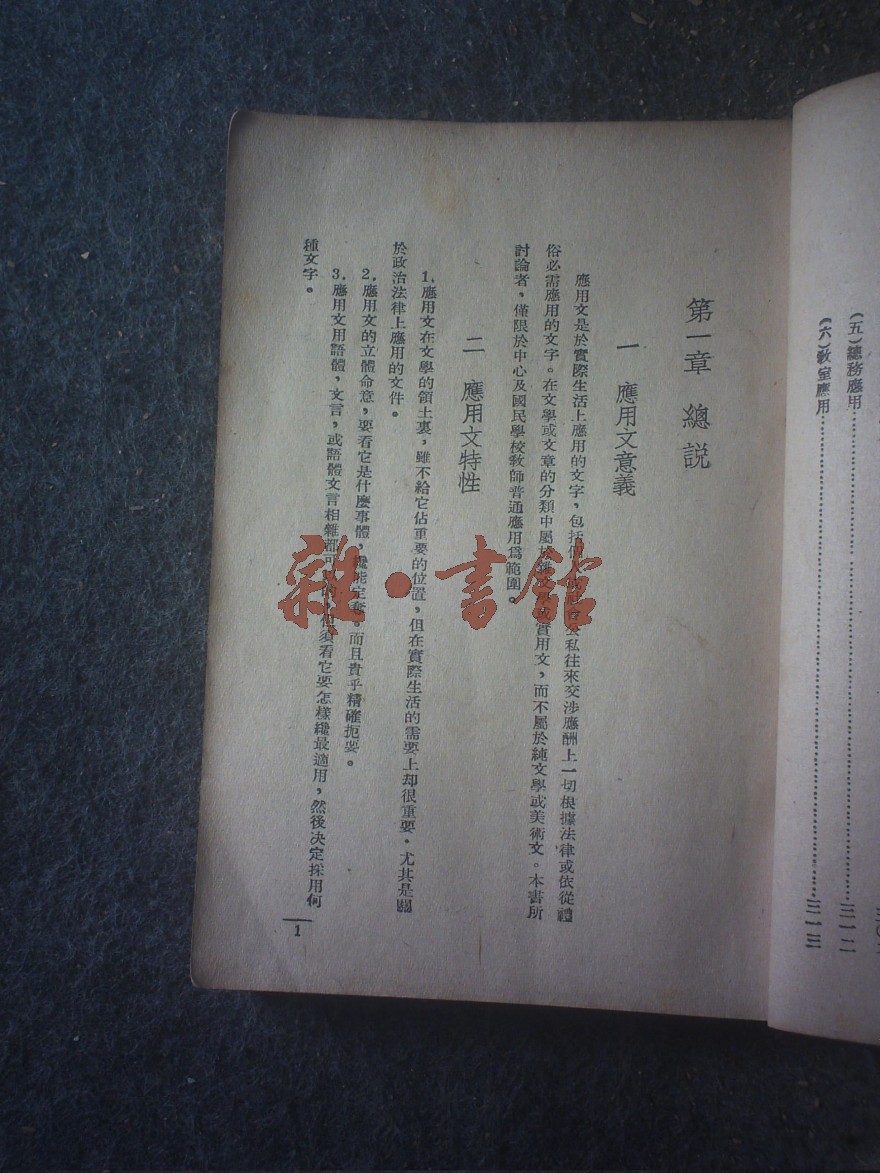 (五)總務應用……三一二
(六)教室應用……三一三
第一章 總説
一 應用文意義
應用文是於實際生活上應用的文字,包括公私往來交涉應酬上一切根據法律或依從禮
俗必需應用的文字。在文學或文章的分類中屬於實用文,而不屬於純文學或美術文。本書所
討論者,僅限於中心及國民學校教師普通應用爲範圍。
二 應用文特性
1.應用文在文學的領土裏,雖不給它佔重要的位置,但在實際生活的需要上却很重要,尤其是關
於政治法律上應用的文件。
2.應用文的立體命意,要看它是什麼事體,纔能定奪。而且貴乎精確扼要。
3.應用文用語體,文言,或語體文言相雜都可須看它要怎樣纔最適用,然後决定採用何
種文字。
1
雜·書館